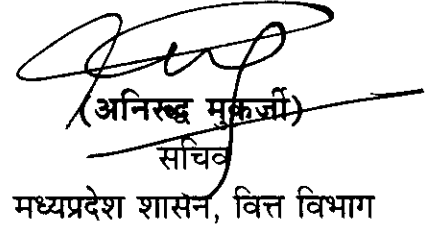 (अनिरुद्ध मुकर्जी)
सचिव
मध्यप्रदेश शासन, वित्त विभाग